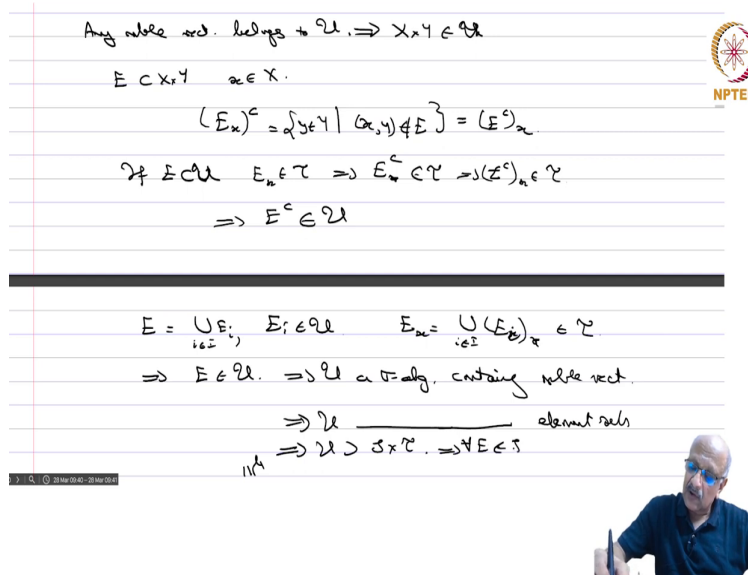 Any mble rect. belongs to 𝒰. ⇒ X×Y ∈ 𝒰
NPTE
E ⊂ X×Y x ∈ X.
(E_x)^c = {y∈Y | (x,y) ∉ E} = (E^c)_x
If E ∈ 𝒰 E_x ∈ τ ⇒ E_x^c ∈ τ ⇒ (E^c)_x ∈ τ
⇒ E^c ∈ 𝒰
E = ∪_{i∈I} E_i, E_i ∈ 𝒰 E_x = ∪_{i∈I} (E_i)_x ∈ τ
⇒ E ∈ 𝒰. ⇒ 𝒰 a σ-alg. containing mble rect.
⇒ 𝒰 ———————— element sets
⇒ 𝒰 ⊃ S×τ. ⇒ ∀E ∈ S
|||ly
28 Mar 09:40 - 28 Mar 09:41